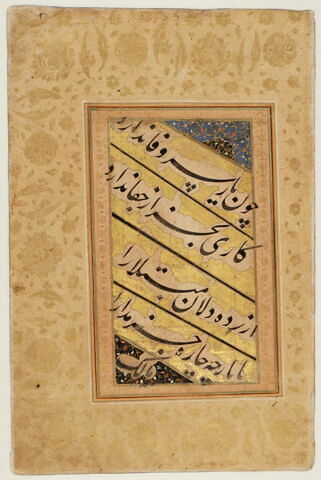 چون یار سر وفا ندارد
کاری بجز از جفا ندارد
ازرده دلان مبتلا را
با یار چه چاره جز مدارا
مالک